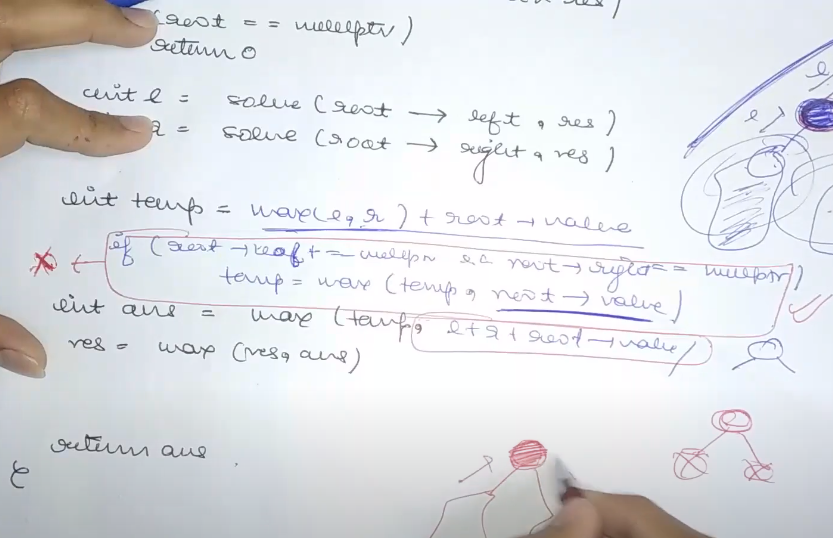 (root == nullptr)
return 0
int l = solve (root → left, res)
r = solve (root → right, res)
int temp = max(l, r) + root → value
if (root → left == nullptr && root → right == nullptr)
temp = max (temp, root → value)
int ans = max (temp, l + r + root → value)
res = max (res, ans)
return ans